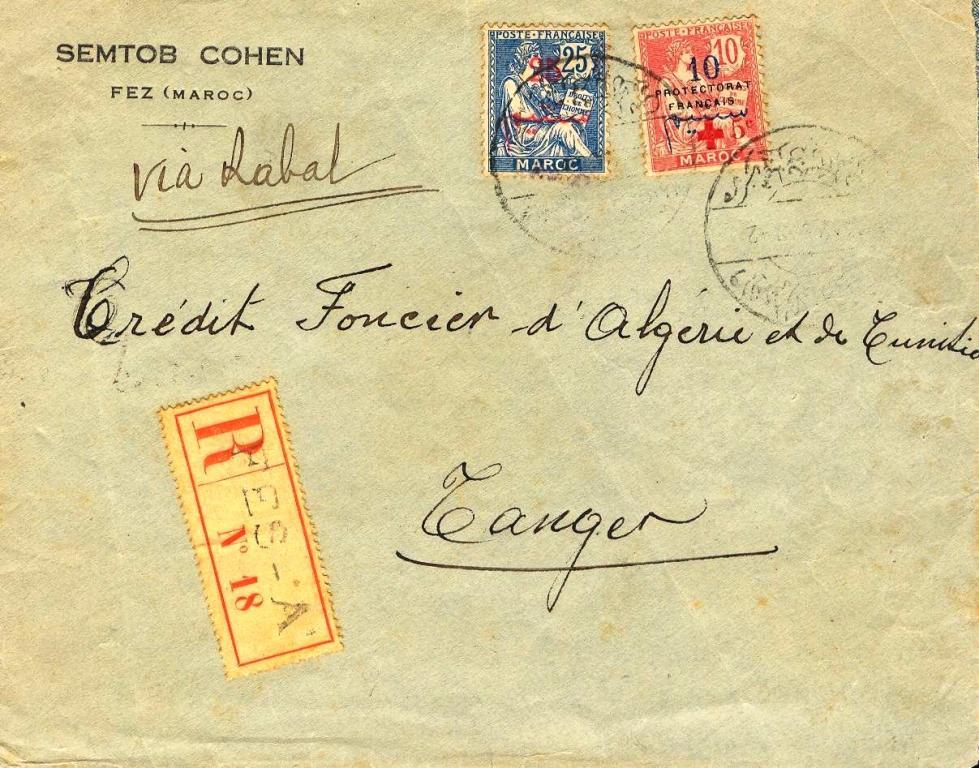 SEMTOB COHEN
FEZ (MAROC)
via Rabat
POSTE FRANÇAISE
25
MAROC
POSTE FRANÇAISE
10
10
PROTECTORAT
FRANÇAIS
5c
MAROC
Crédit Foncier d'Algérie et de Tunisie
Tanger
R
FES-A
No 18